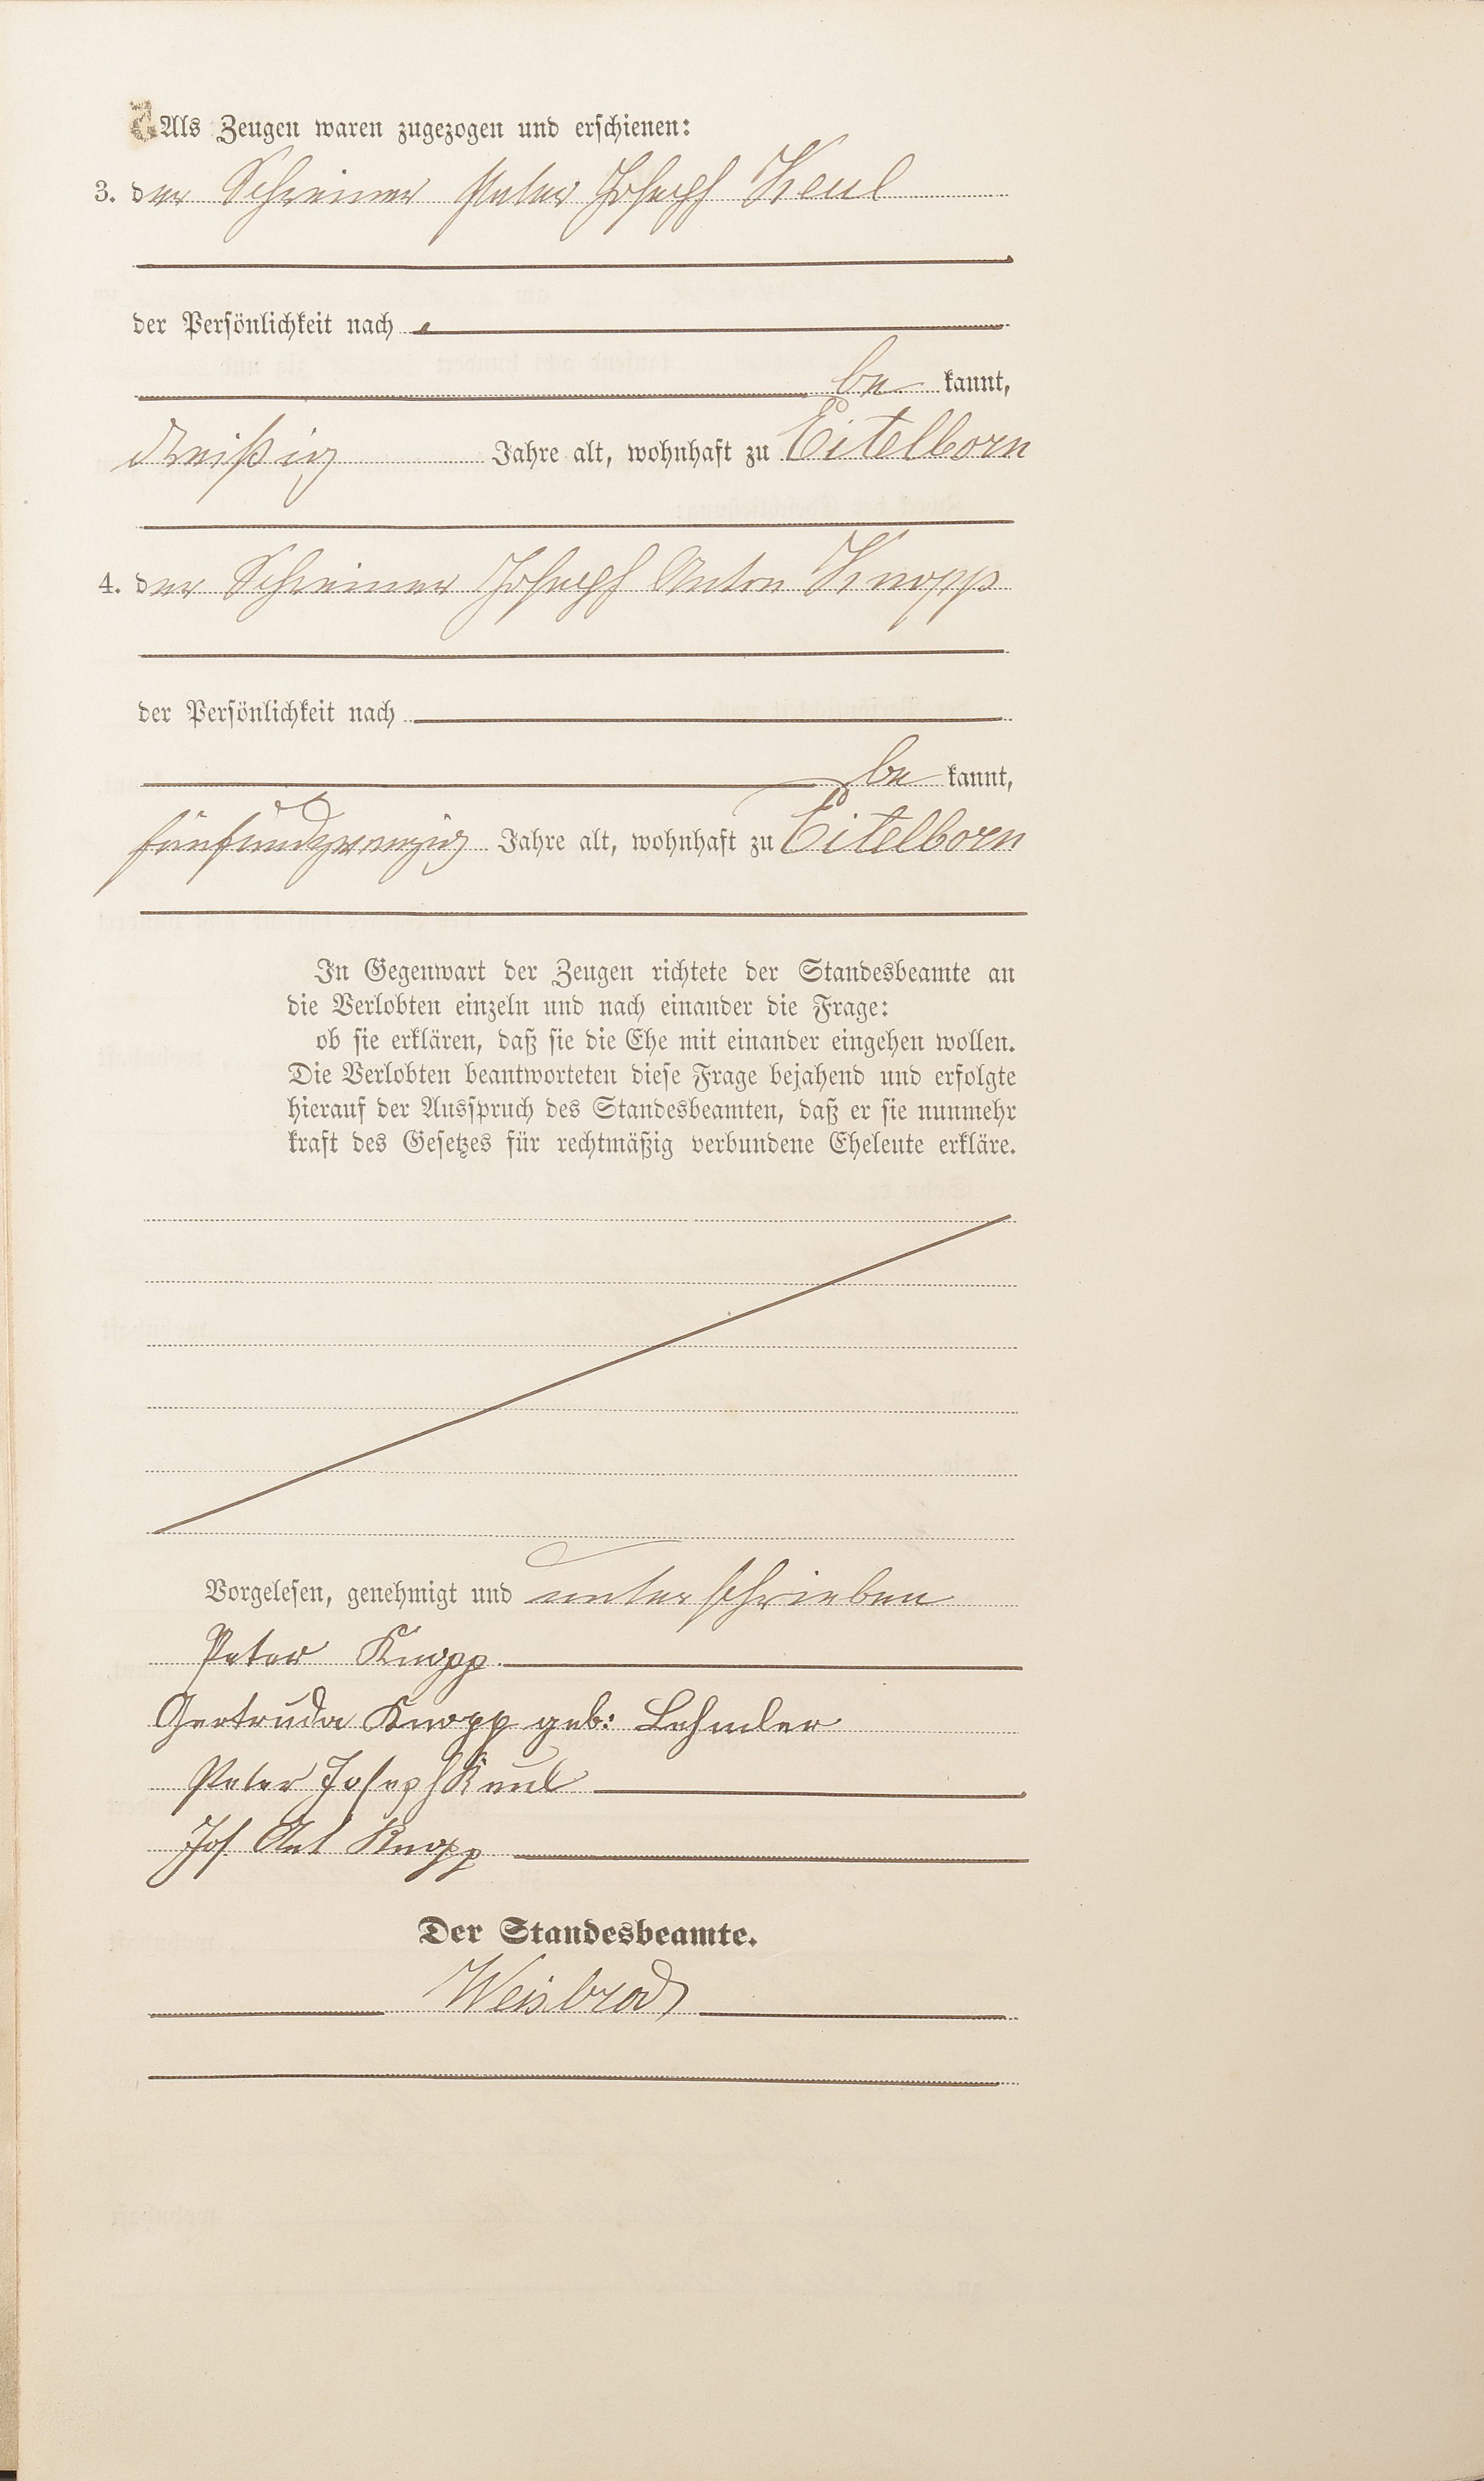 Als Zeugen waren zugezogen und erschienen:
3. der Schreiner Peter Joseph Keul
der Persönlichkeit nach
be kannt,
dreißig Jahre alt, wohnhaft zu Eitelborn
4. der Schreiner Joseph Anton Knopp
der Persönlichkeit nach
be kannt,
fünfundzwanzig Jahre alt, wohnhaft zu Eitelborn
In Gegenwart der Zeugen richtete der Standesbeamte an
die Verlobten einzeln und nach einander die Frage:
ob sie erklären, daß sie die Ehe mit einander eingehen wollen.
Die Verlobten beantworteten diese Frage bejahend und erfolgte
hierauf der Ausspruch des Standesbeamten, daß er sie nunmehr
kraft des Gesetzes für rechtmäßig verbundene Eheleute erkläre.
Vorgelesen, genehmigt und unterschrieben
Peter Knopp
Gertruda Knopp geb: Lehmler
Peter Joseph Keul
Jos. Ant Knopp
Der Standesbeamte.
Weisbrod